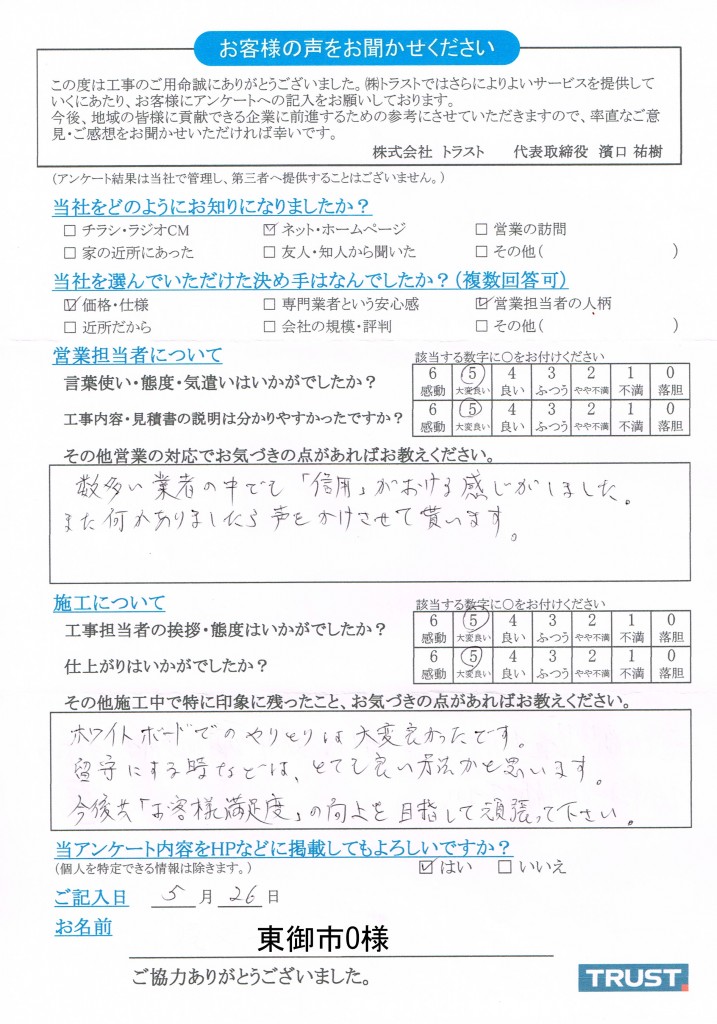 お客様の声をお聞かせください
この度は工事のご用命誠にありがとうございました。㈱トラストではさらによりよいサービスを提供して
いくにあたり、お客様にアンケートへの記入をお願いしております。
今後、地域の皆様に貢献できる企業に前進するための参考にさせていただきますので、率直なご意
見・ご感想をお聞かせいただければ幸いです。
株式会社 トラスト 代表取締役 濱口 祐樹
(アンケート結果は当社で管理し、第三者へ提供することはございません。)
当社をどのようにお知りになりましたか?
□ チラシ・ラジオCM ☑ ネット・ホームページ □ 営業の訪問
□ 家の近所にあった □ 友人・知人から聞いた □ その他( )
当社を選んでいただけた決め手はなんでしたか?(複数回答可)
☑ 価格・仕様 □ 専門業者という安心感 ☑ 営業担当者の人柄
□ 近所だから □ 会社の規模・評判 □ その他( )
営業担当者について 該当する数字に○をお付けください
言葉使い・態度・気遣いはいかがでしたか? 6 ⑤ 4 3 2 1 0
感動 大変良い 良い ふつう やや不満 不満 落胆
工事内容・見積書の説明は分かりやすかったですか? 6 ⑤ 4 3 2 1 0
感動 大変良い 良い ふつう やや不満 不満 落胆
その他営業の対応でお気づきの点があればお教えください。
数多い業者の中でも「信用」がおける感じがしました。
また何かありましたら声をかけさせて貰います。
施工について 該当する数字に○をお付けください
工事担当者の挨拶・態度はいかがでしたか? 6 ⑤ 4 3 2 1 0
感動 大変良い 良い ふつう やや不満 不満 落胆
仕上がりはいかがでしたか? 6 ⑤ 4 3 2 1 0
感動 大変良い 良い ふつう やや不満 不満 落胆
その他施工中で特に印象に残ったこと、お気づきの点があればお教えください。
ホワイトボードでのやりとりは大変良かったです。
留守にする時などは、とても良い方法かと思います。
今後共「お客様満足度」の向上を目指して頑張って下さい。
当アンケート内容をHPなどに掲載してもよろしいですか?
(個人を特定できる情報は除きます。) ☑ はい □ いいえ
ご記入日 5 月 26 日
お名前 東御市O様
ご協力ありがとうございました。
TRUST